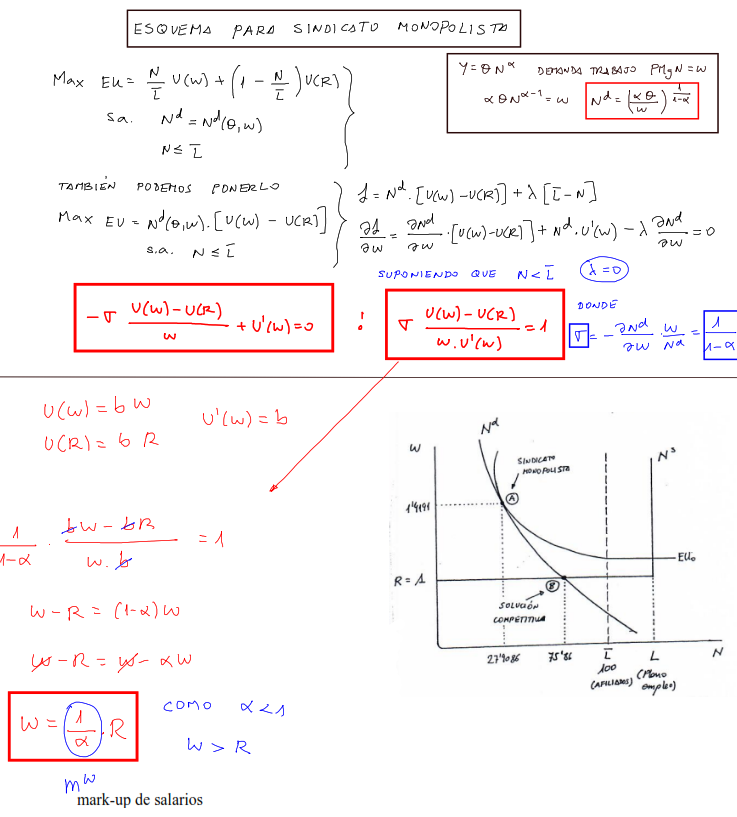 ESQUEMA PARA SINDICATO MONOPOLISTA
Max EU = N/L̅ U(W) + (1 - N/L̅) U(R)
s.a. Nᵈ = Nᵈ(θ,W)
N ≤ L̅
Y = θ N^α DEMANDA TRABAJO PMgN = W
α θ N^(α-1) = W Nᵈ = (αθ/W)^(1/(1-α))
TAMBIÉN PODEMOS PONERLO
Max EU = Nᵈ(θ,W) . [U(W) - U(R)]
s.a. N ≤ L̅
ℒ = Nᵈ . [U(W) - U(R)] + λ [L̅ - N]
∂ℒ/∂W = ∂Nᵈ/∂W . [U(W) - U(R)] + Nᵈ . U'(W) - λ ∂Nᵈ/∂W = 0
SUPONIENDO QUE N < L̅ λ = 0
-σ (U(W) - U(R))/W + U'(W) = 0 : σ (U(W) - U(R))/(W . U'(W)) = 1
DONDE
σ = - ∂Nᵈ/∂W . W/Nᵈ = 1/(1-α)
U(W) = b W U'(W) = b
U(R) = b R
1/(1-α) . (bW - bR)/(W . b) = 1
W - R = (1-α) W
W - R = W - αW
W = 1/α . R COMO α < 1
W > R
mᵂ
mark-up de salarios
W Nᵈ Nˢ
SINDICATO
MONOPOLISTA
A
1'4191
EU₀
R = 1
B
SOLUCIÓN
COMPETITIVA
27'9086 75'86 L̅ L N
100 (Pleno
(AFILIADOS) empleo)